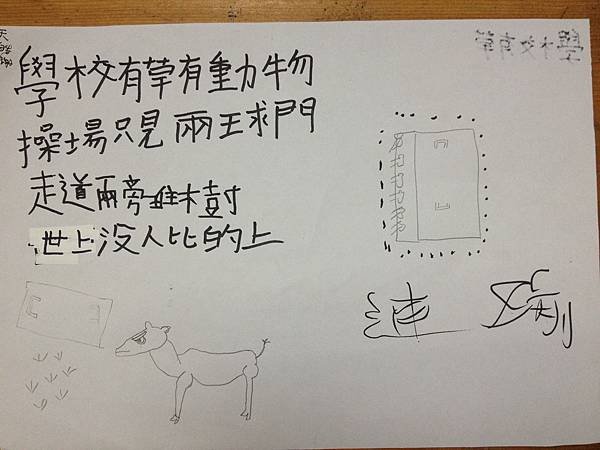 學校有草有動物
操場只見兩球門
走道兩旁堆樹
世上沒人比的上